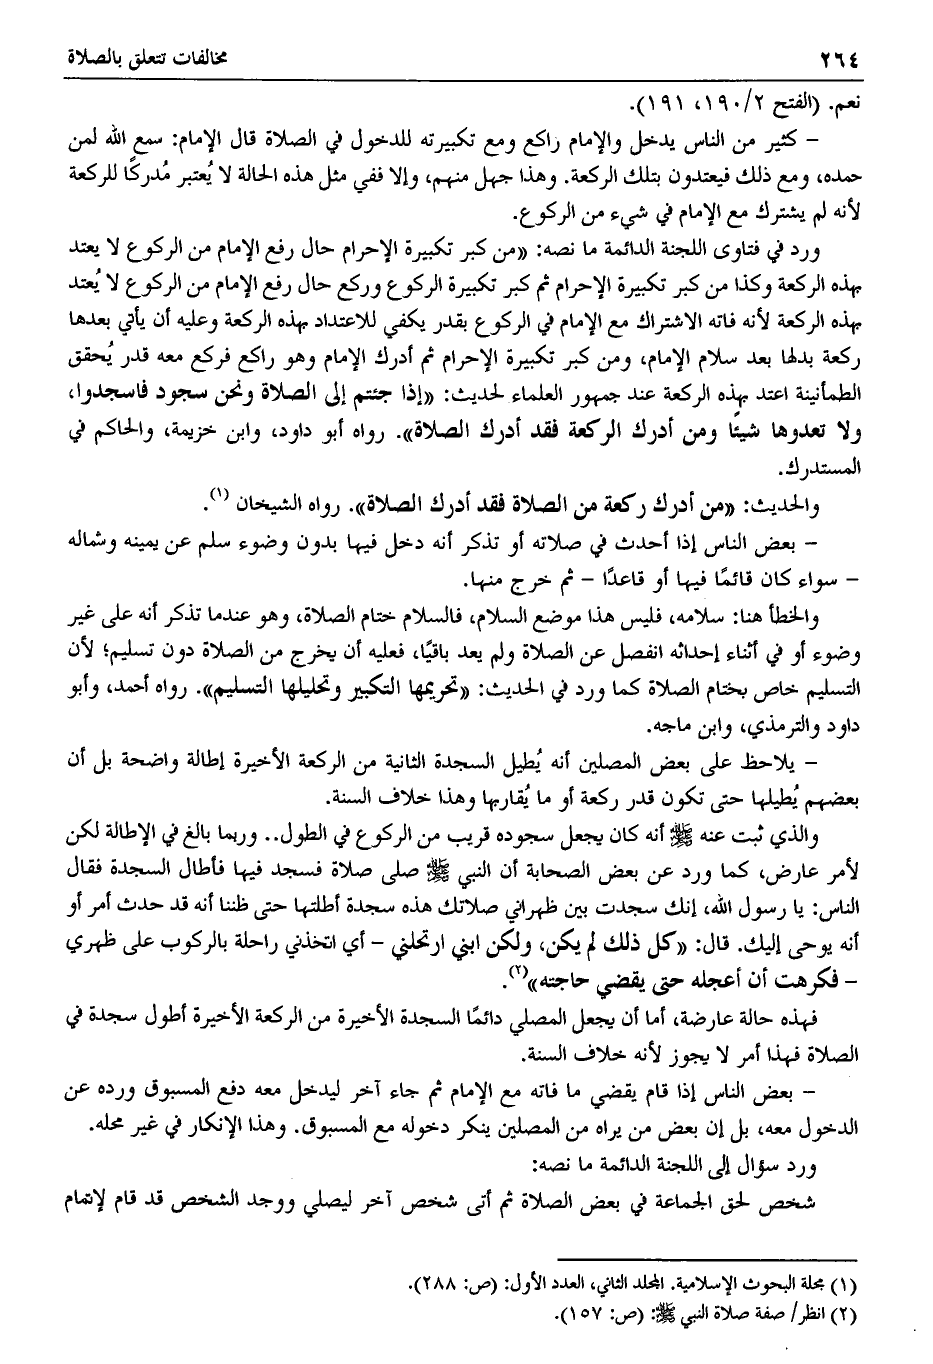 ٢٦٤
مخالفات تتعلق بالصلاة
نعم. (الفتح ١٩٠/٢، ١٩١).
– كثير من الناس يدخل والإمام راكع ومع تكبيرته للدخول في الصلاة قال الإمام: سمع الله لمن
حمده، ومع ذلك فيعتدون بتلك الركعة. وهذا جهل منهم، وإلا ففي مثل هذه الحالة لا يُعتبر مُدركًا للركعة
لأنه لم يشترك مع الإمام في شيء من الركوع.
ورد في فتاوى اللجنة الدائمة ما نصه: «من كبر تكبيرة الإحرام حال رفع الإمام من الركوع لا يعتد
بهذه الركعة وكذا من كبر تكبيرة الإحرام ثم كبر تكبيرة الركوع وركع حال رفع الإمام من الركوع لا يُعتد
بهذه الركعة لأنه فاته الاشتراك مع الإمام في الركوع بقدر يكفي للاعتداد بهذه الركعة وعليه أن يأتي بعدها
ركعة بدلها بعد سلام الإمام، ومن كبر تكبيرة الإحرام ثم أدرك الإمام وهو راكع فركع معه قدر يُحقق
الطمأنينة اعتد بهذه الركعة عند جمهور العلماء لحديث: «إذا جئتم إلى الصلاة ونحن سجود فاسجدوا،
ولا تعدوها شيئًا ومن أدرك الركعة فقد أدرك الصلاة». رواه أبو داود، وابن خزيمة، والحاكم في
المستدرك.
والحديث: «من أدرك ركعة من الصلاة فقد أدرك الصلاة». رواه الشيخان (١).
– بعض الناس إذا أحدث في صلاته أو تذكر أنه دخل فيها بدون وضوء سلم عن يمينه وشماله
– سواء كان قائمًا فيها أو قاعدًا – ثم خرج منها.
والخطأ هنا: سلامه، فليس هذا موضع السلام، فالسلام ختام الصلاة، وهو عندما تذكر أنه على غير
وضوء أو في أثناء إحداثه انفصل عن الصلاة ولم يعد باقيًا، فعليه أن يخرج من الصلاة دون تسليم؛ لأن
التسليم خاص بختام الصلاة كما ورد في الحديث: «تحريمها التكبير وتحليلها التسليم». رواه أحمد، وأبو
داود والترمذي، وابن ماجه.
– يلاحظ على بعض المصلين أنه يُطيل السجدة الثانية من الركعة الأخيرة إطالة واضحة بل أن
بعضهم يُطيلها حتى تكون قدر ركعة أو ما يُقاربها وهذا خلاف السنة.
والذي ثبت عنه ﷺ أنه كان يجعل سجوده قريب من الركوع في الطول.. وربما بالغ في الإطالة لكن
لأمر عارض، كما ورد عن بعض الصحابة أن النبي ﷺ صلى صلاة فسجد فيها فأطال السجدة فقال
الناس: يا رسول الله، إنك سجدت بين ظهراني صلاتك هذه سجدة أطلتها حتى ظننا أنه قد حدث أمر أو
أنه يوحى إليك. قال: «كل ذلك لم يكن، ولكن ابني ارتحلني – أي اتخذني راحلة بالركوب على ظهري
– فكرهت أن أعجله حتى يقضي حاجته»(٢).
فهذه حالة عارضة، أما أن يجعل المصلي دائمًا السجدة الأخيرة من الركعة الأخيرة أطول سجدة في
الصلاة فهذا أمر لا يجوز لأنه خلاف السنة.
– بعض الناس إذا قام يقضي ما فاته مع الإمام ثم جاء آخر ليدخل معه دفع المسبوق ورده عن
الدخول معه، بل إن بعض من يراه من المصلين ينكر دخوله مع المسبوق. وهذا الإنكار في غير محله.
ورد سؤال إلى اللجنة الدائمة ما نصه:
شخص لحق الجماعة في بعض الصلاة ثم أتى شخص آخر ليصلي ووجد الشخص قد قام لإتمام
(١) مجلة البحوث الإسلامية. المجلد الثاني، العدد الأول: (ص: ٢٨٨).
(٢) انظر/ صفة صلاة النبي ﷺ: (ص: ١٥٧).